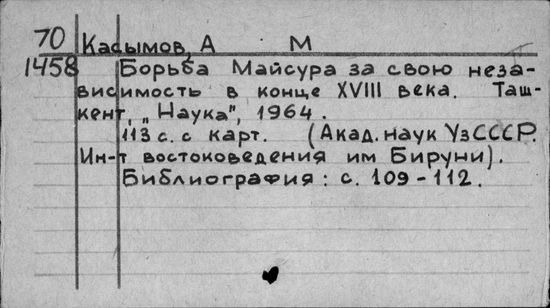 70 Касымов, А М
1458 Борьба Майсура за свою неза-
висимость в конце XVIII века. Таш-
кент, „Наука", 1964.
113 с. с карт. (Акад. наук УзССР.
Ин-т востоковедения им Бируни).
Библиография: с. 109-112.